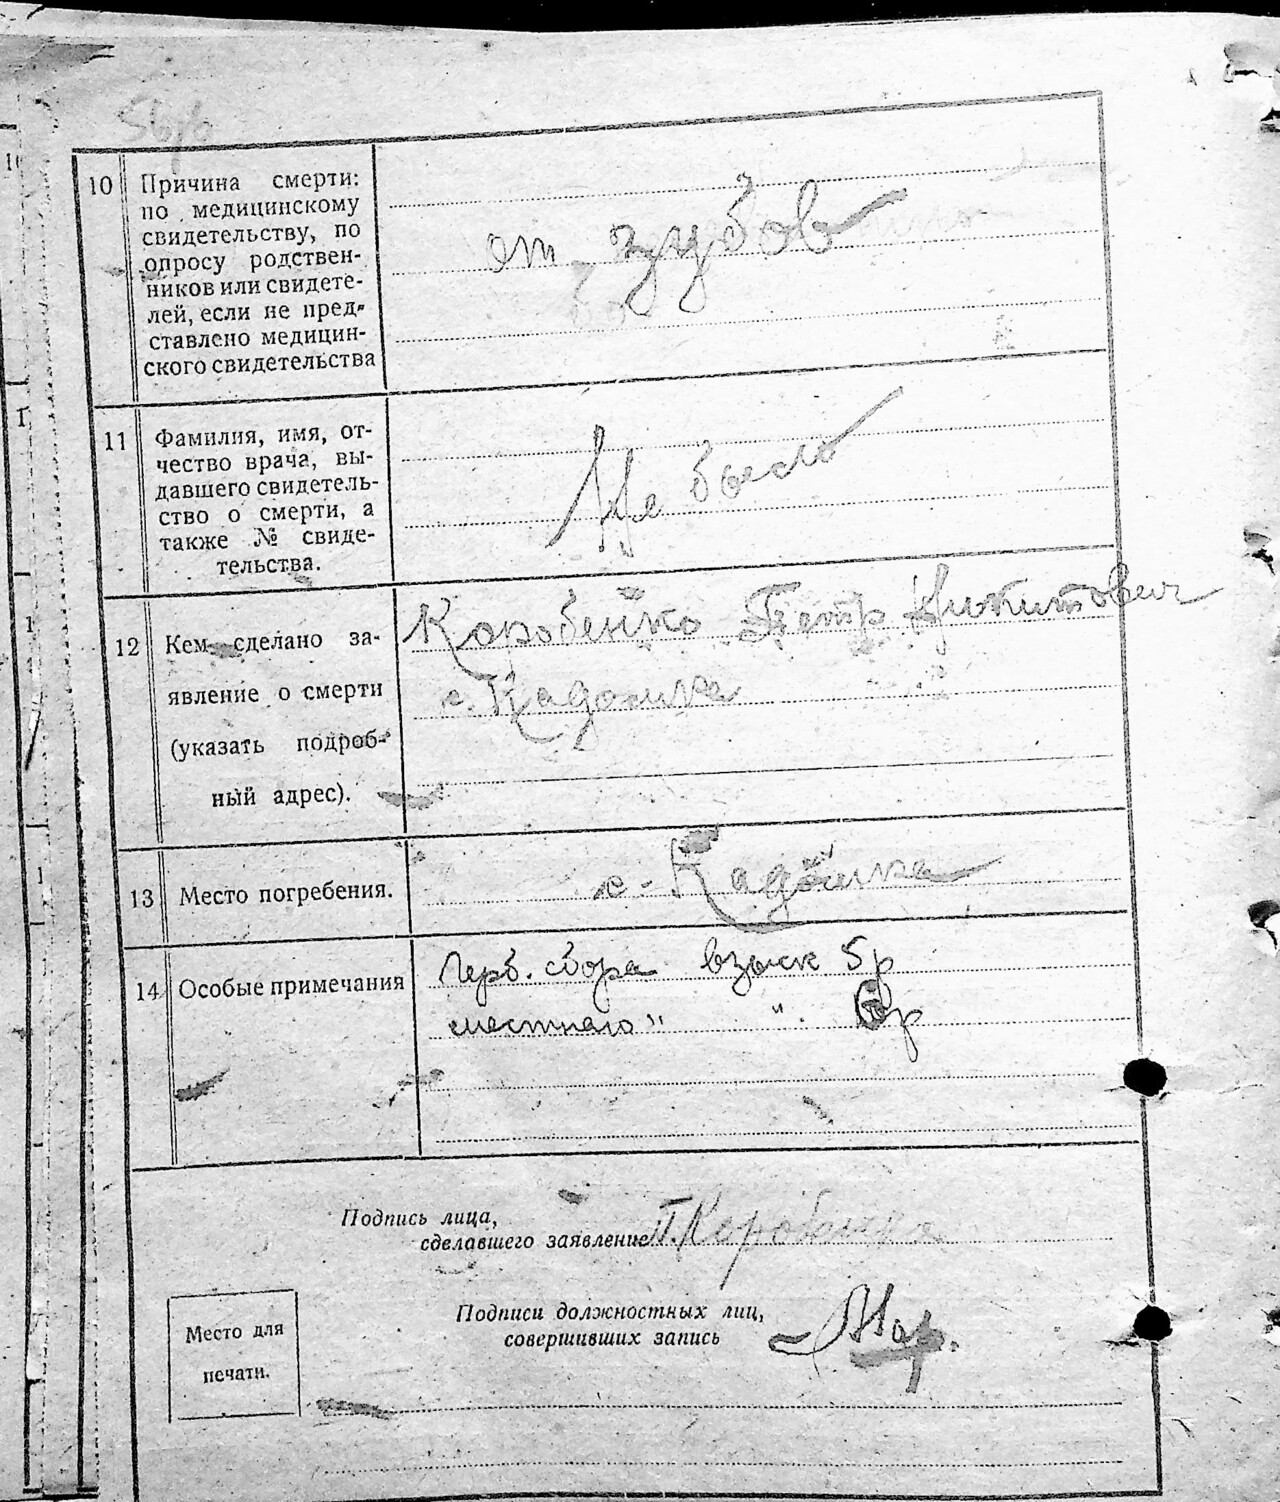 10 Причина смерти:
по медицинскому
свидетельству, по
опросу родствен-
ников или свидете-
лей, если не пред-
ставлено медицин-
ского свидетельства
от зубов
11 Фамилия, имя, от-
чество врача, вы-
давшего свидетель-
ство о смерти, а
также № свиде-
тельства.
Не было
12 Кем сделано за-
явление о смерти
(указать подроб-
ный адрес).
Коробейко Петр Никитович
с.
13 Место погребения.
с.
14 Особые примечания
Герб. сбора взыск 5р
местного " "
Подпись лица,
сделавшего заявление П.
Подписи должностных лиц,
совершивших запись
Место для
печати.